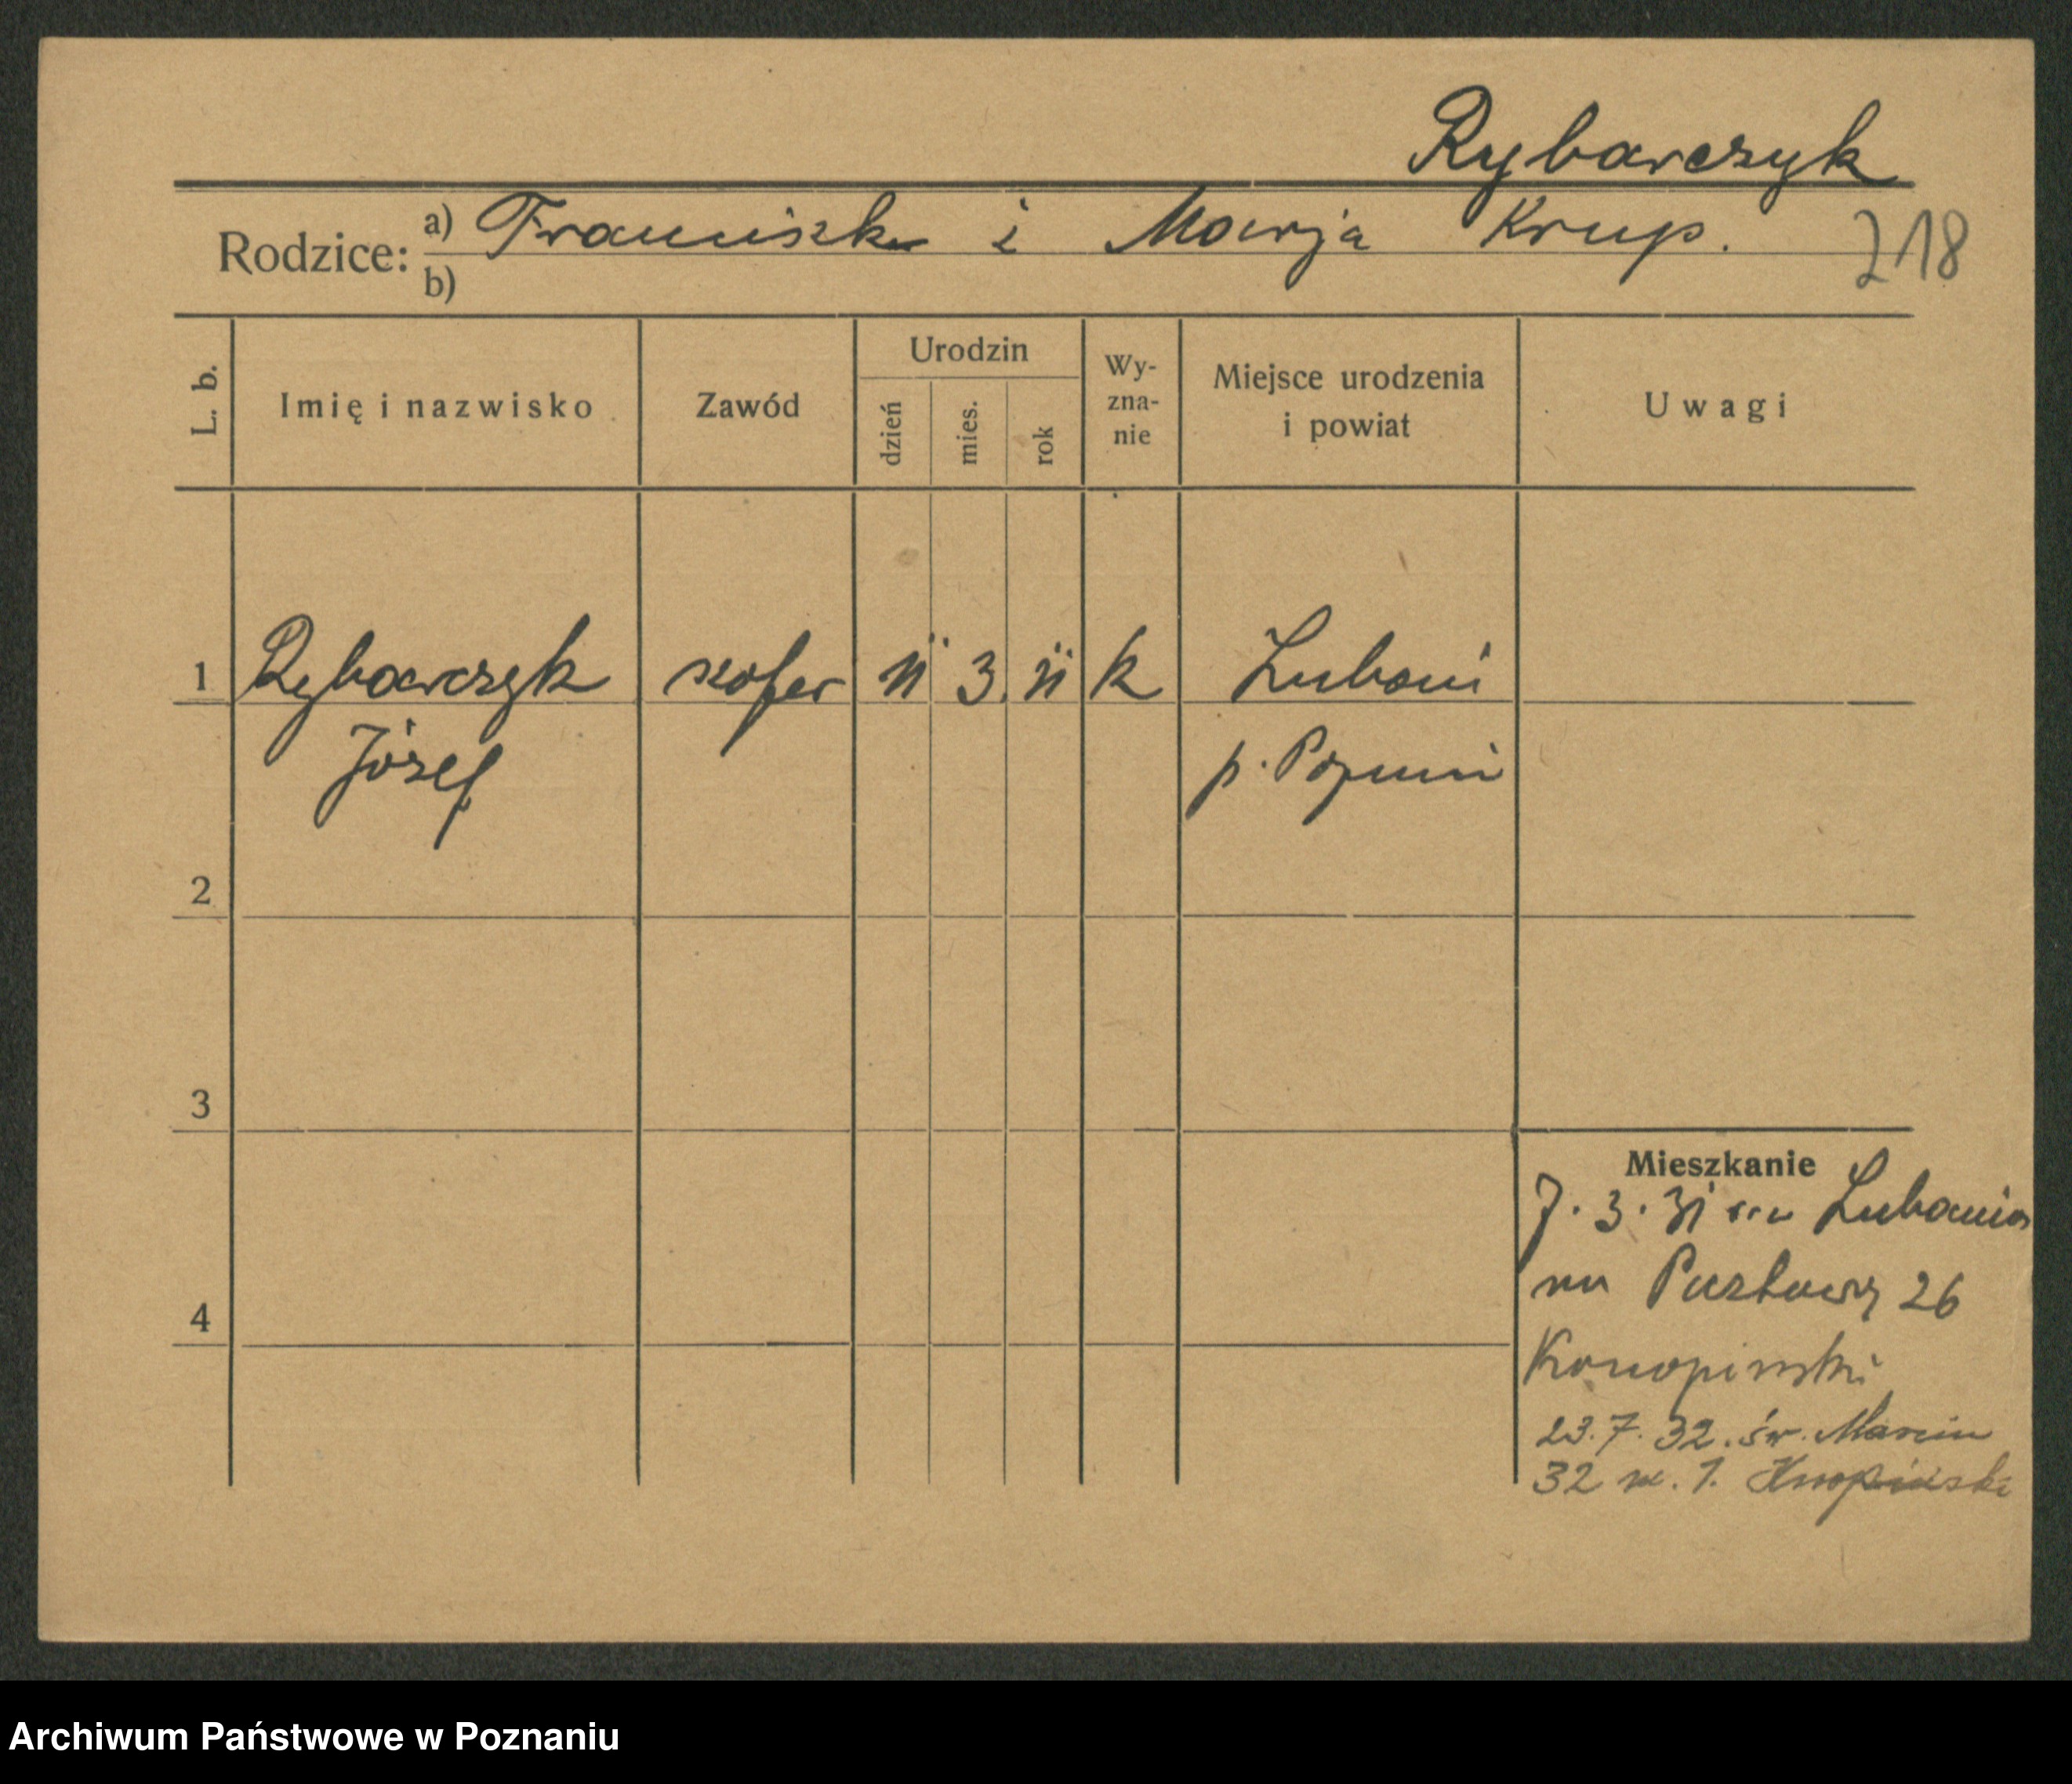 Rybarczyk
Rodzice: a) Franciszek i Marja Krup.
b)
218
L. b.
Imię i nazwisko
Zawód
Urodzin
dzień
mies.
rok
Wy-
zna-
nie
Miejsce urodzenia
i powiat
Uwagi
1 Rybarczyk szofer 11 3. 11 k Luboń
Józef p. Poznań
2
3
4
Mieszkanie
7. 3. 31 Lubonia
26
Konopiński
23. 7. 32. św. Marcin
32 m. 1. Knopiński
Archiwum Państwowe w Poznaniu